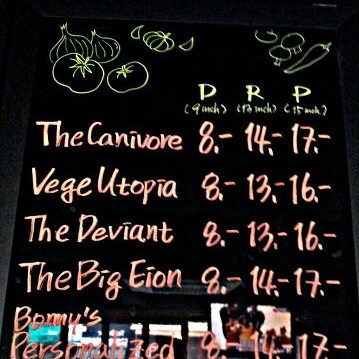 D R P
(9 inch) (12 inch) (15 inch)
The Canivore 8.- 14.- 17.-
Vege Utopia 8.- 13.- 16.-
The Deviant 8.- 13.- 16.-
The Big Eion 8.- 14.- 17.-
Bonny's
Personalized 8.- 14.- 17.-